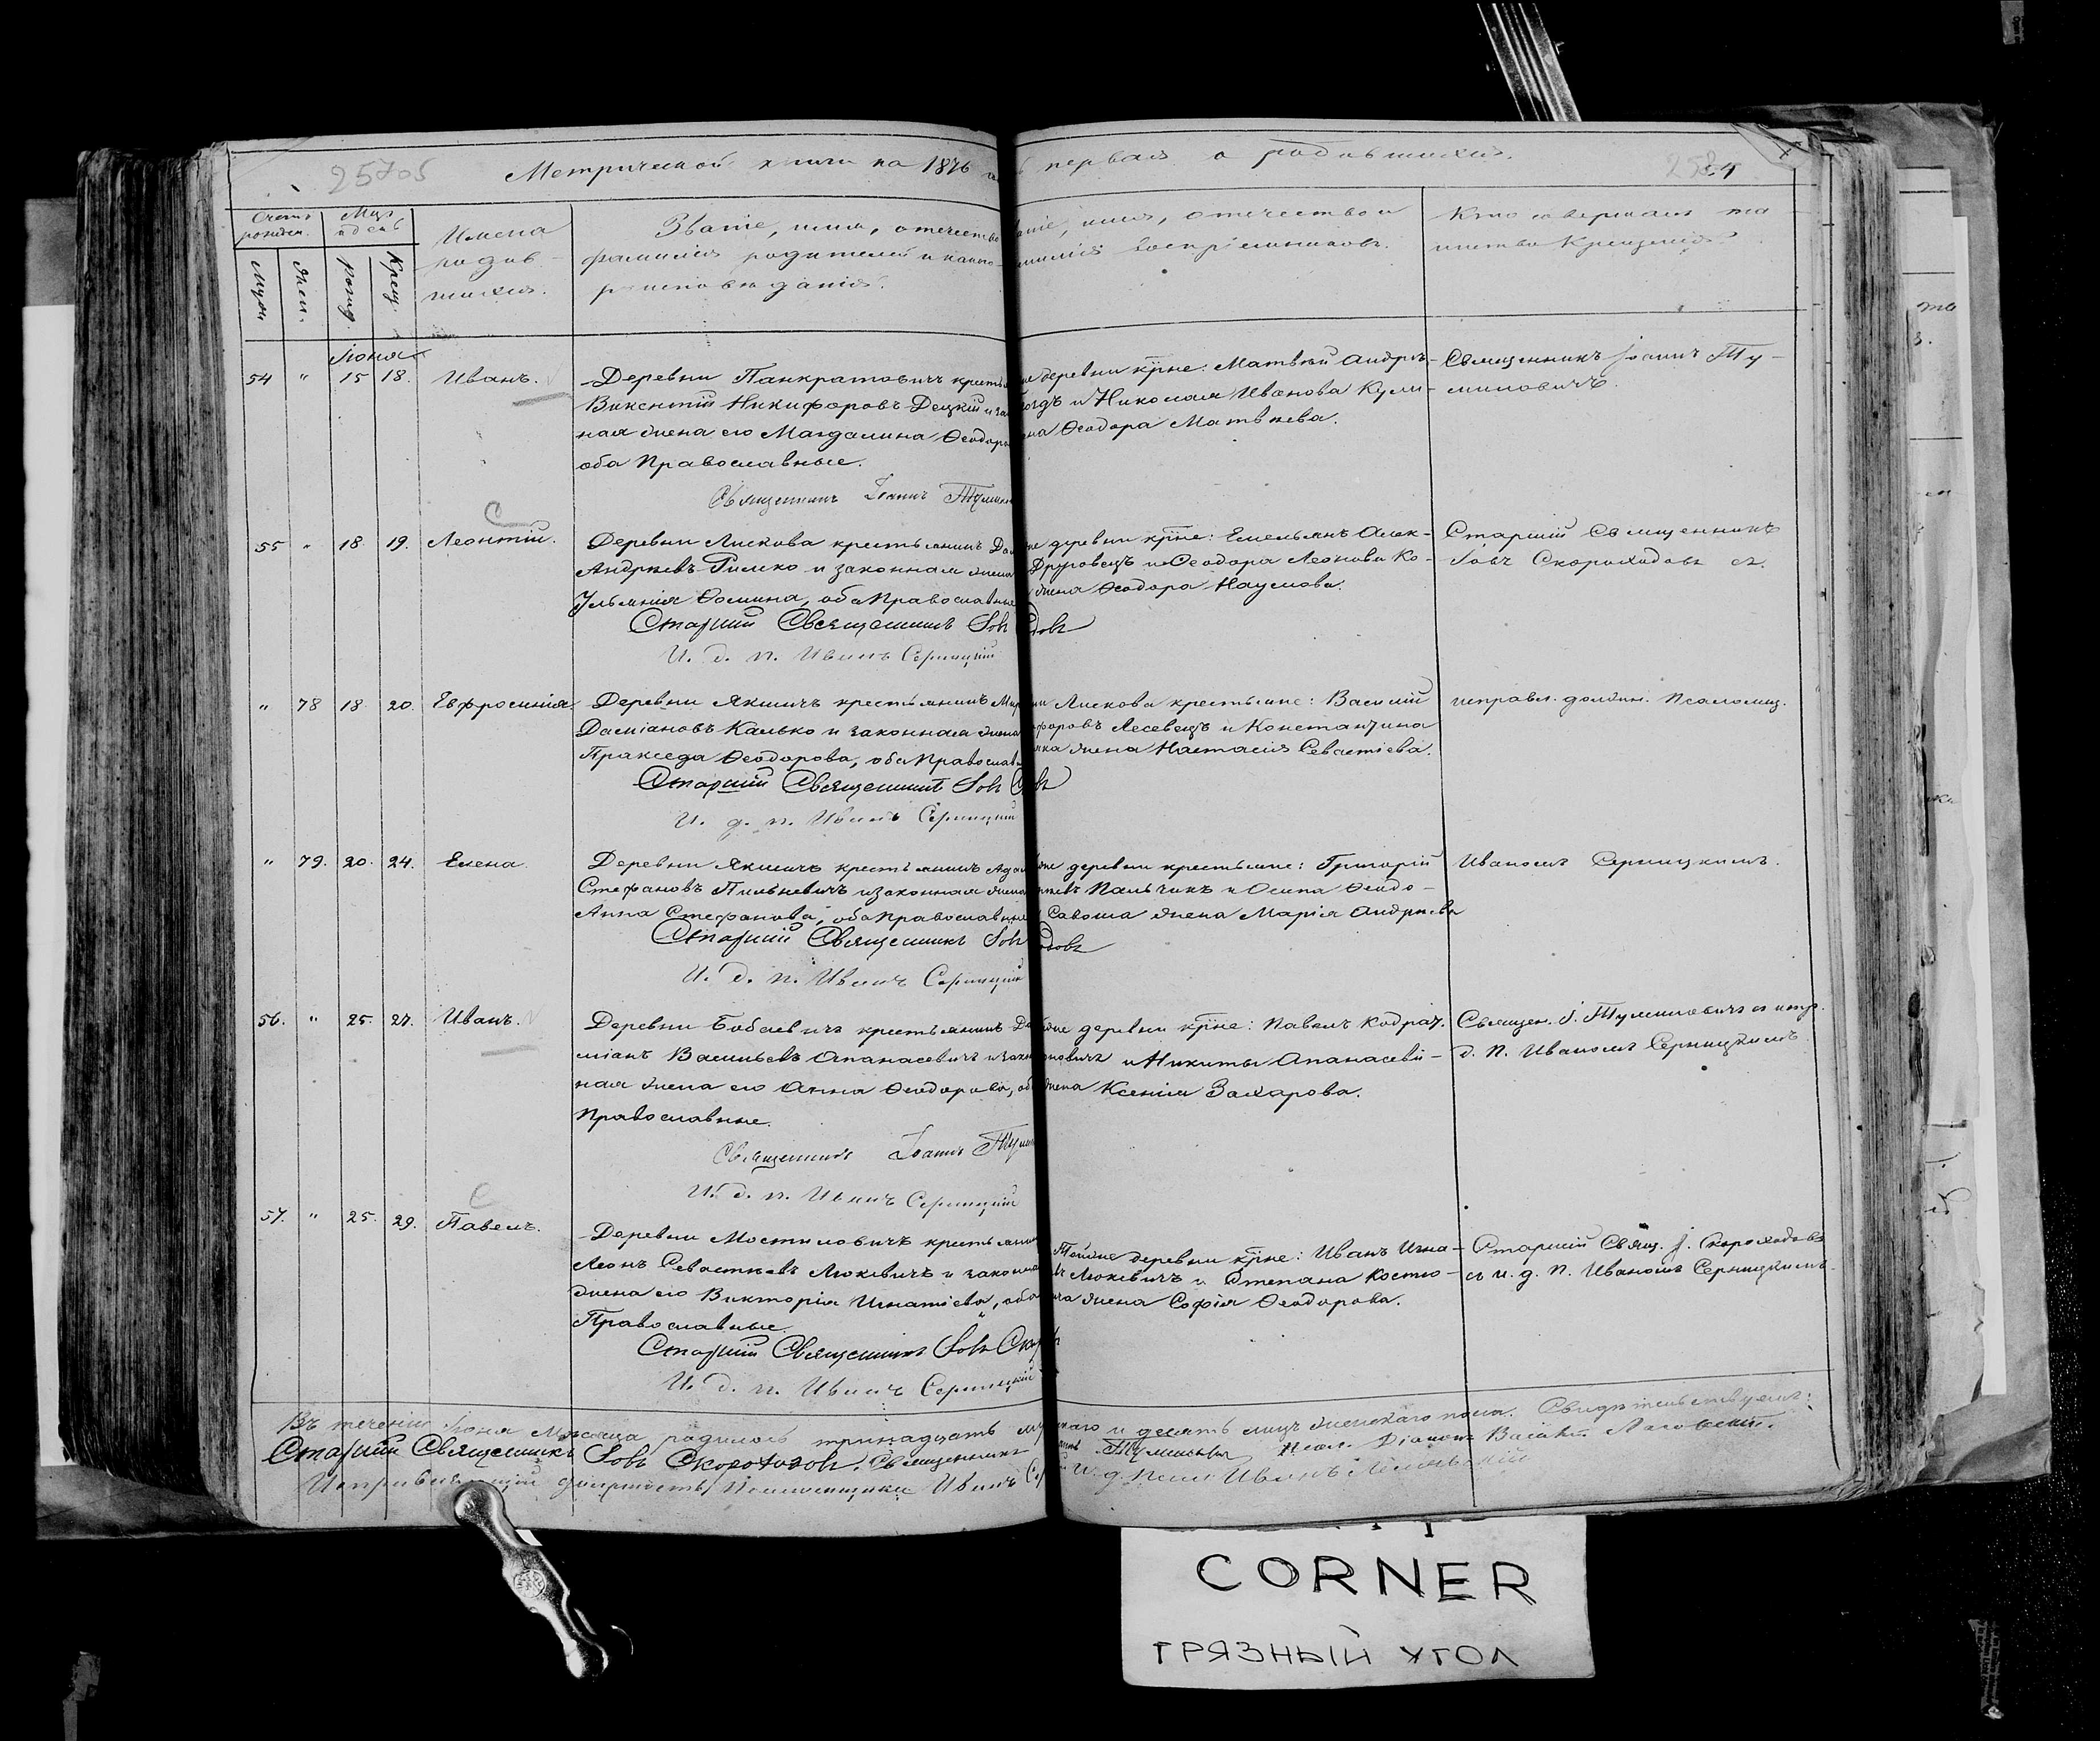 Метрической книги на 1876 первая о родившихся.
Счетъ рожден.
Муж.
Жен.
Мѣс. и день
Рожд.
Крещ.
Имена
родив-
шихся.
Званіе, имя, отечество
фамилія родителей и какого
вѣроисповѣданія.
имя, отечество и
фамилія воспріемниковъ.
Кто совершалъ та-
инство Крещенія?
Іюня
54 " 15 18. Иванъ.
Деревни Панкратовичъ
Викентій Никифоровъ Децкій и
ная жена его Магдалина Ѳеодоро
оба Православные.
Священникъ Іоаннъ
деревни кр̃не: Матвѣй Андрѣ-
и Николая Иванова Кули-
Ѳеодора Матвѣева.
Священникъ Іоаннъ Ту-
миловичъ.
55 " 18. 19. Леонтій.
Деревни Лискова крестьянинъ
Андреевъ Римко и законная жена
Ульянія Ѳомина, оба Православные
Старшій Священникъ Іовъ
И. д. п. Иванъ Серницкій
деревни кр̃не: Емельянъ Алек-
Друговецъ и Ѳеодора Леонова Ко-
жена Ѳеодора Наумова.
Старшій Священникъ
Іовъ Скороходовъ съ
" 78 18. 20. Евфросинія.
Деревни Якимичъ крестьянинъ
Даміановъ Калько и законная жена
Пракседа Ѳеодорова, оба Православ
Старшій Священникъ Іовъ
И. д. п. Иванъ Серницкій
Лискова крестьяне: Василій
Лесевецъ и Константина
жена Настасія Севастіева.
исправл. должн. Псаломщ.
" 79. 20. 24. Елена.
Деревни Якимичъ крестьянинъ
Стефановъ Пильневичъ и законная жена
Анна Стефанова, оба Православные
Старшій Священникъ Іовъ
И. д. п. Иванъ Серницкій
деревни крестьяне: Григорій
Пальчикъ и Осипа Ѳеодо-
Савоша жена Марія Андреева
Иваномъ Серницкимъ.
56. " 25. 27. Иванъ.
Деревни Бобаевичъ крестьянинъ Да
міанъ Васильевъ Апанасевичъ и
ная жена его Анна Ѳеодорова,
Православные.
Священникъ Іоаннъ
И. д. п. Иванъ Серницкій
деревни кр̃не: Павелъ Кодрат.
и Никиты Апанасеви-
жена Ксенія Захарова.
Священ. І. Тумиловичъ съ испр.
д. П. Иваномъ Серницкимъ
57. " 25. 29. Павелъ.
Деревни Мостиловичъ
Леонъ Севастьевъ Люкевичъ и
жена его Викторія Игнатіева, оба
Православные.
Старшій Священникъ Іовъ
И. д. п. Иванъ Серницкій
Тойже деревни кр̃не: Иванъ Игна-
Люкевичъ и Степана Костю-
жена Софія Ѳеодорова.
Старшій Свящ. І. Скороходовъ
съ и. д. П. Иваномъ Серницкимъ.
Въ теченіи Іюня Мѣсяца родилось тринадцать и десять лицъ женскаго пола. Свидѣтельствуемъ:
Старшій Священникъ Іовъ Скороходовъ. Священникъ Тумиловичъ
Псаломщика Иванъ
CORNER
ГРЯЗНЫЙ УГОЛ